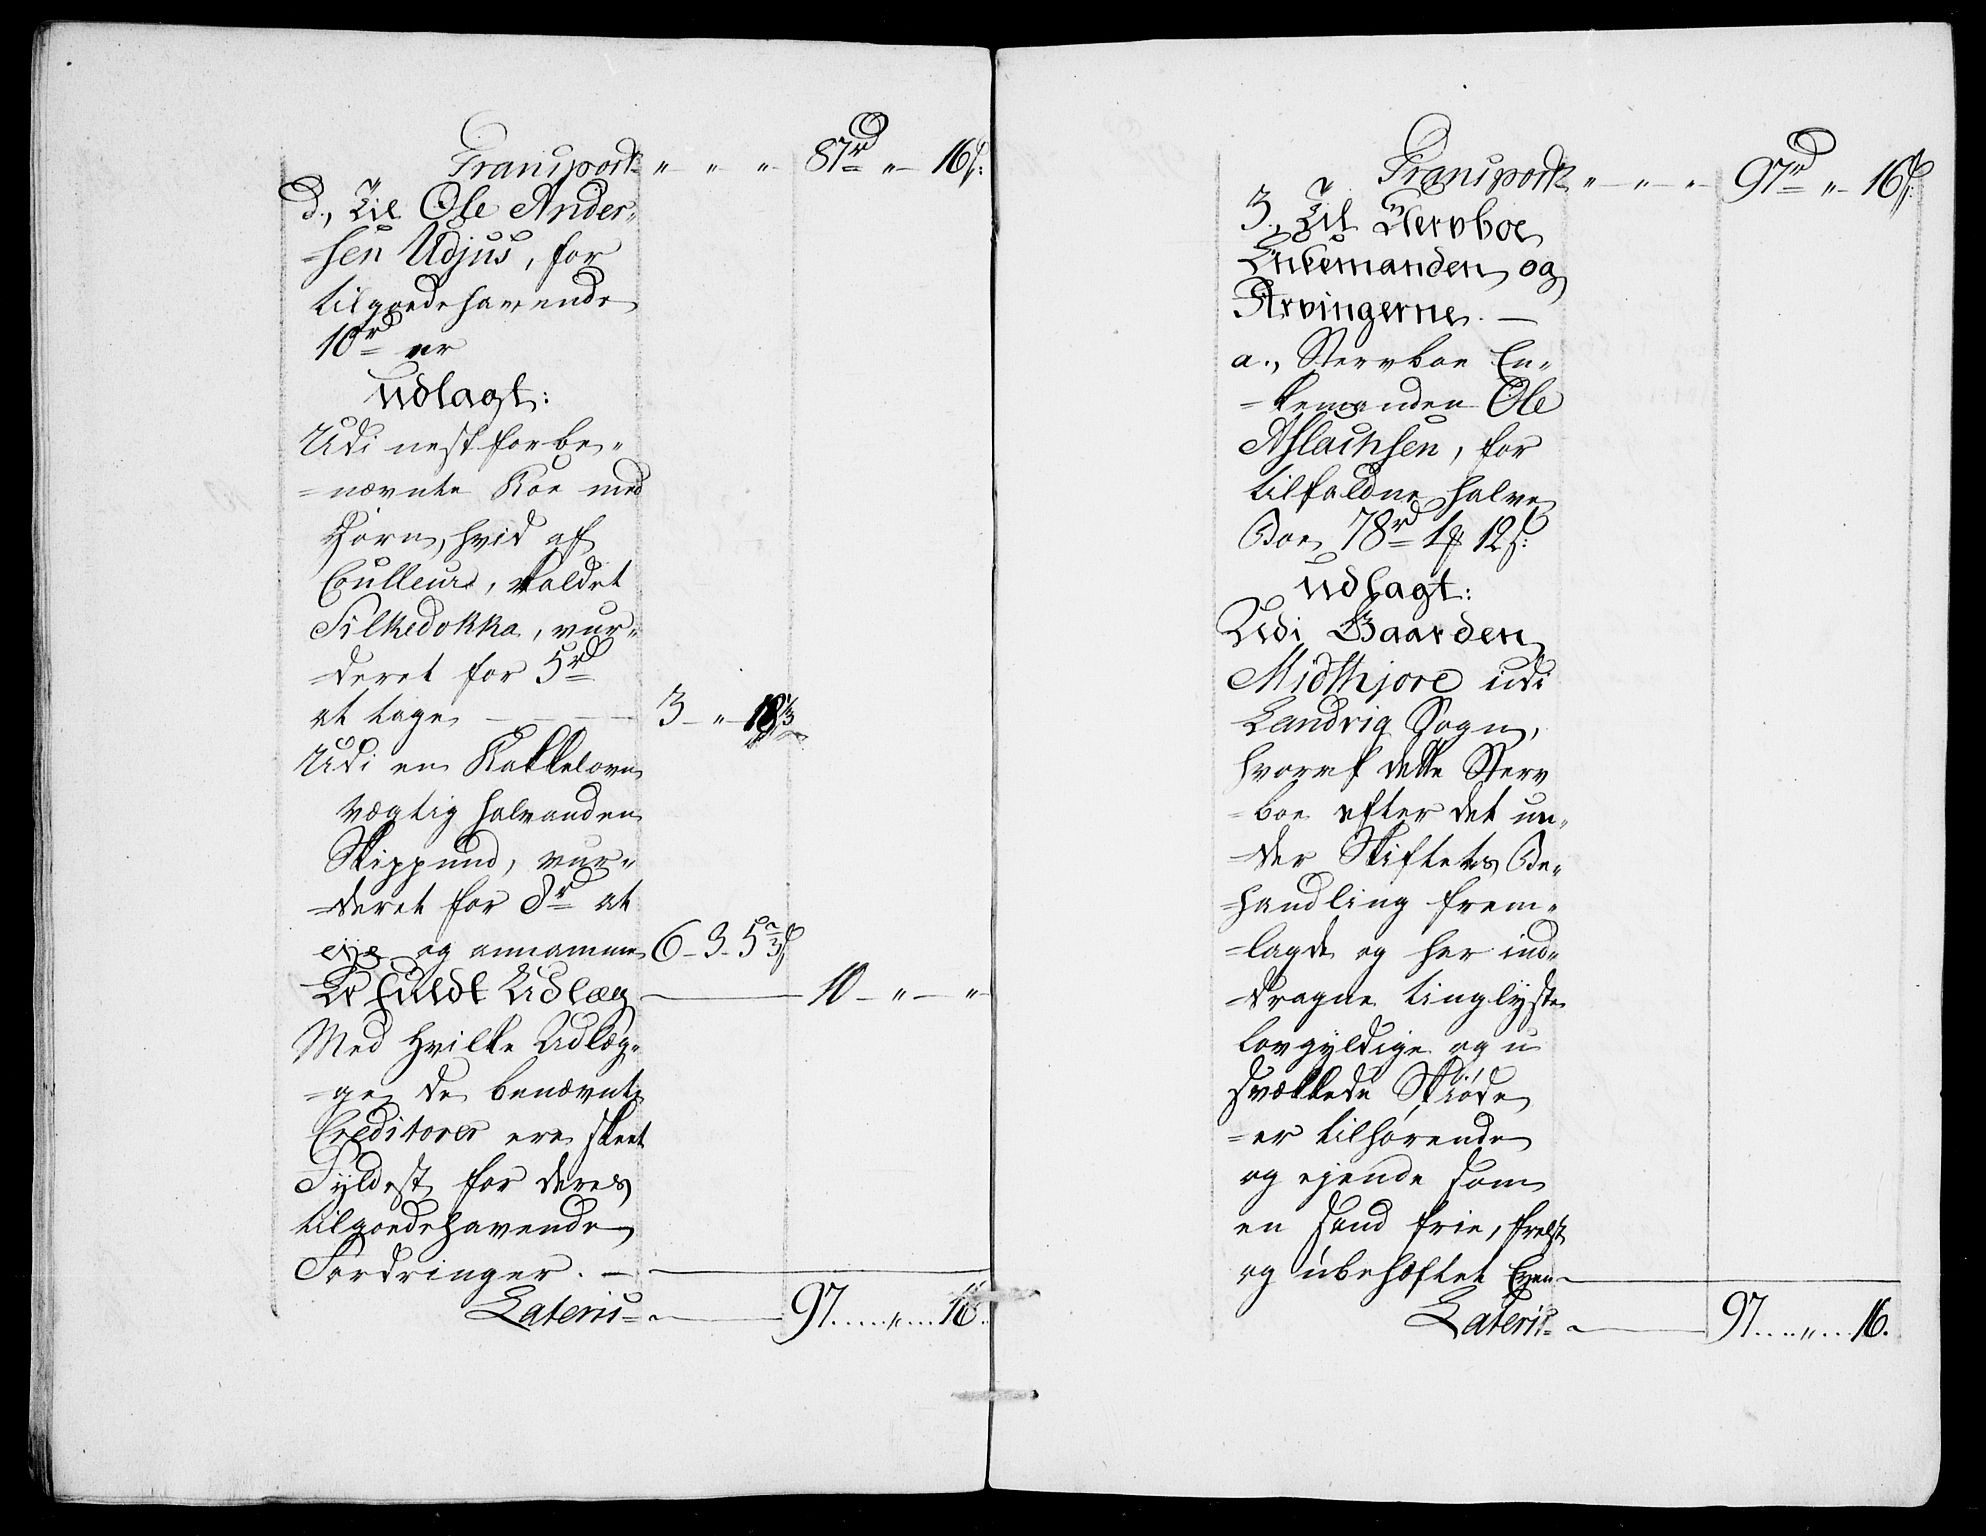 Transport „ „ „ 87rd „ 16ß:
d., Til Ole Ander-
=sen Udjus, for
tilgoedehavende
10rd er
udlagt:
Udi nestforbe-
=nævnte Koe med
Horn, hvid af
Coulleur, kaldet
Silkedokka, vur-
=deret for 5rd
at tage — 3 - „ - 18 1/3
Udi en Kakkelovn
vægtig halvanden
Skippund, vur-
=deret for 8rd at
eye og annamme 6 - 3 - 5 2/3ß
Er fuldt Udlæg — 10 - „ - „
Med hvilke Udlæg-
=ge de benævnte
Creditorer ere skeet
Fyldest for deres
tilgoedehavende
Fordringer. —
Lateris — 97 .... „ .... 16.
Transport „ - „ - „ 97rd „ 16ß:
3., Til Stervboe
Enkemanden og
Arvingerne. —
a., Stervboe En-
=kemanden Ole
Aslachsen, for
tilfaldne halve
Boe 78rd 1 12ß:
udlagt:
Udi Gaarden
Midthjore udi
Landvig Sogn,
hvoraf dette Sterv
=boe efter det un-
=der Skiftets Be-
=handling frem-
=lagde og her ind-
=dragne tinglyste
lovgyldige og u
svækkede Skiøde
=er tilhørende
og ejende som
en sand frie, frelst
og ubehæftet Eyen—
Lateris — 97 .... „ ... 16.